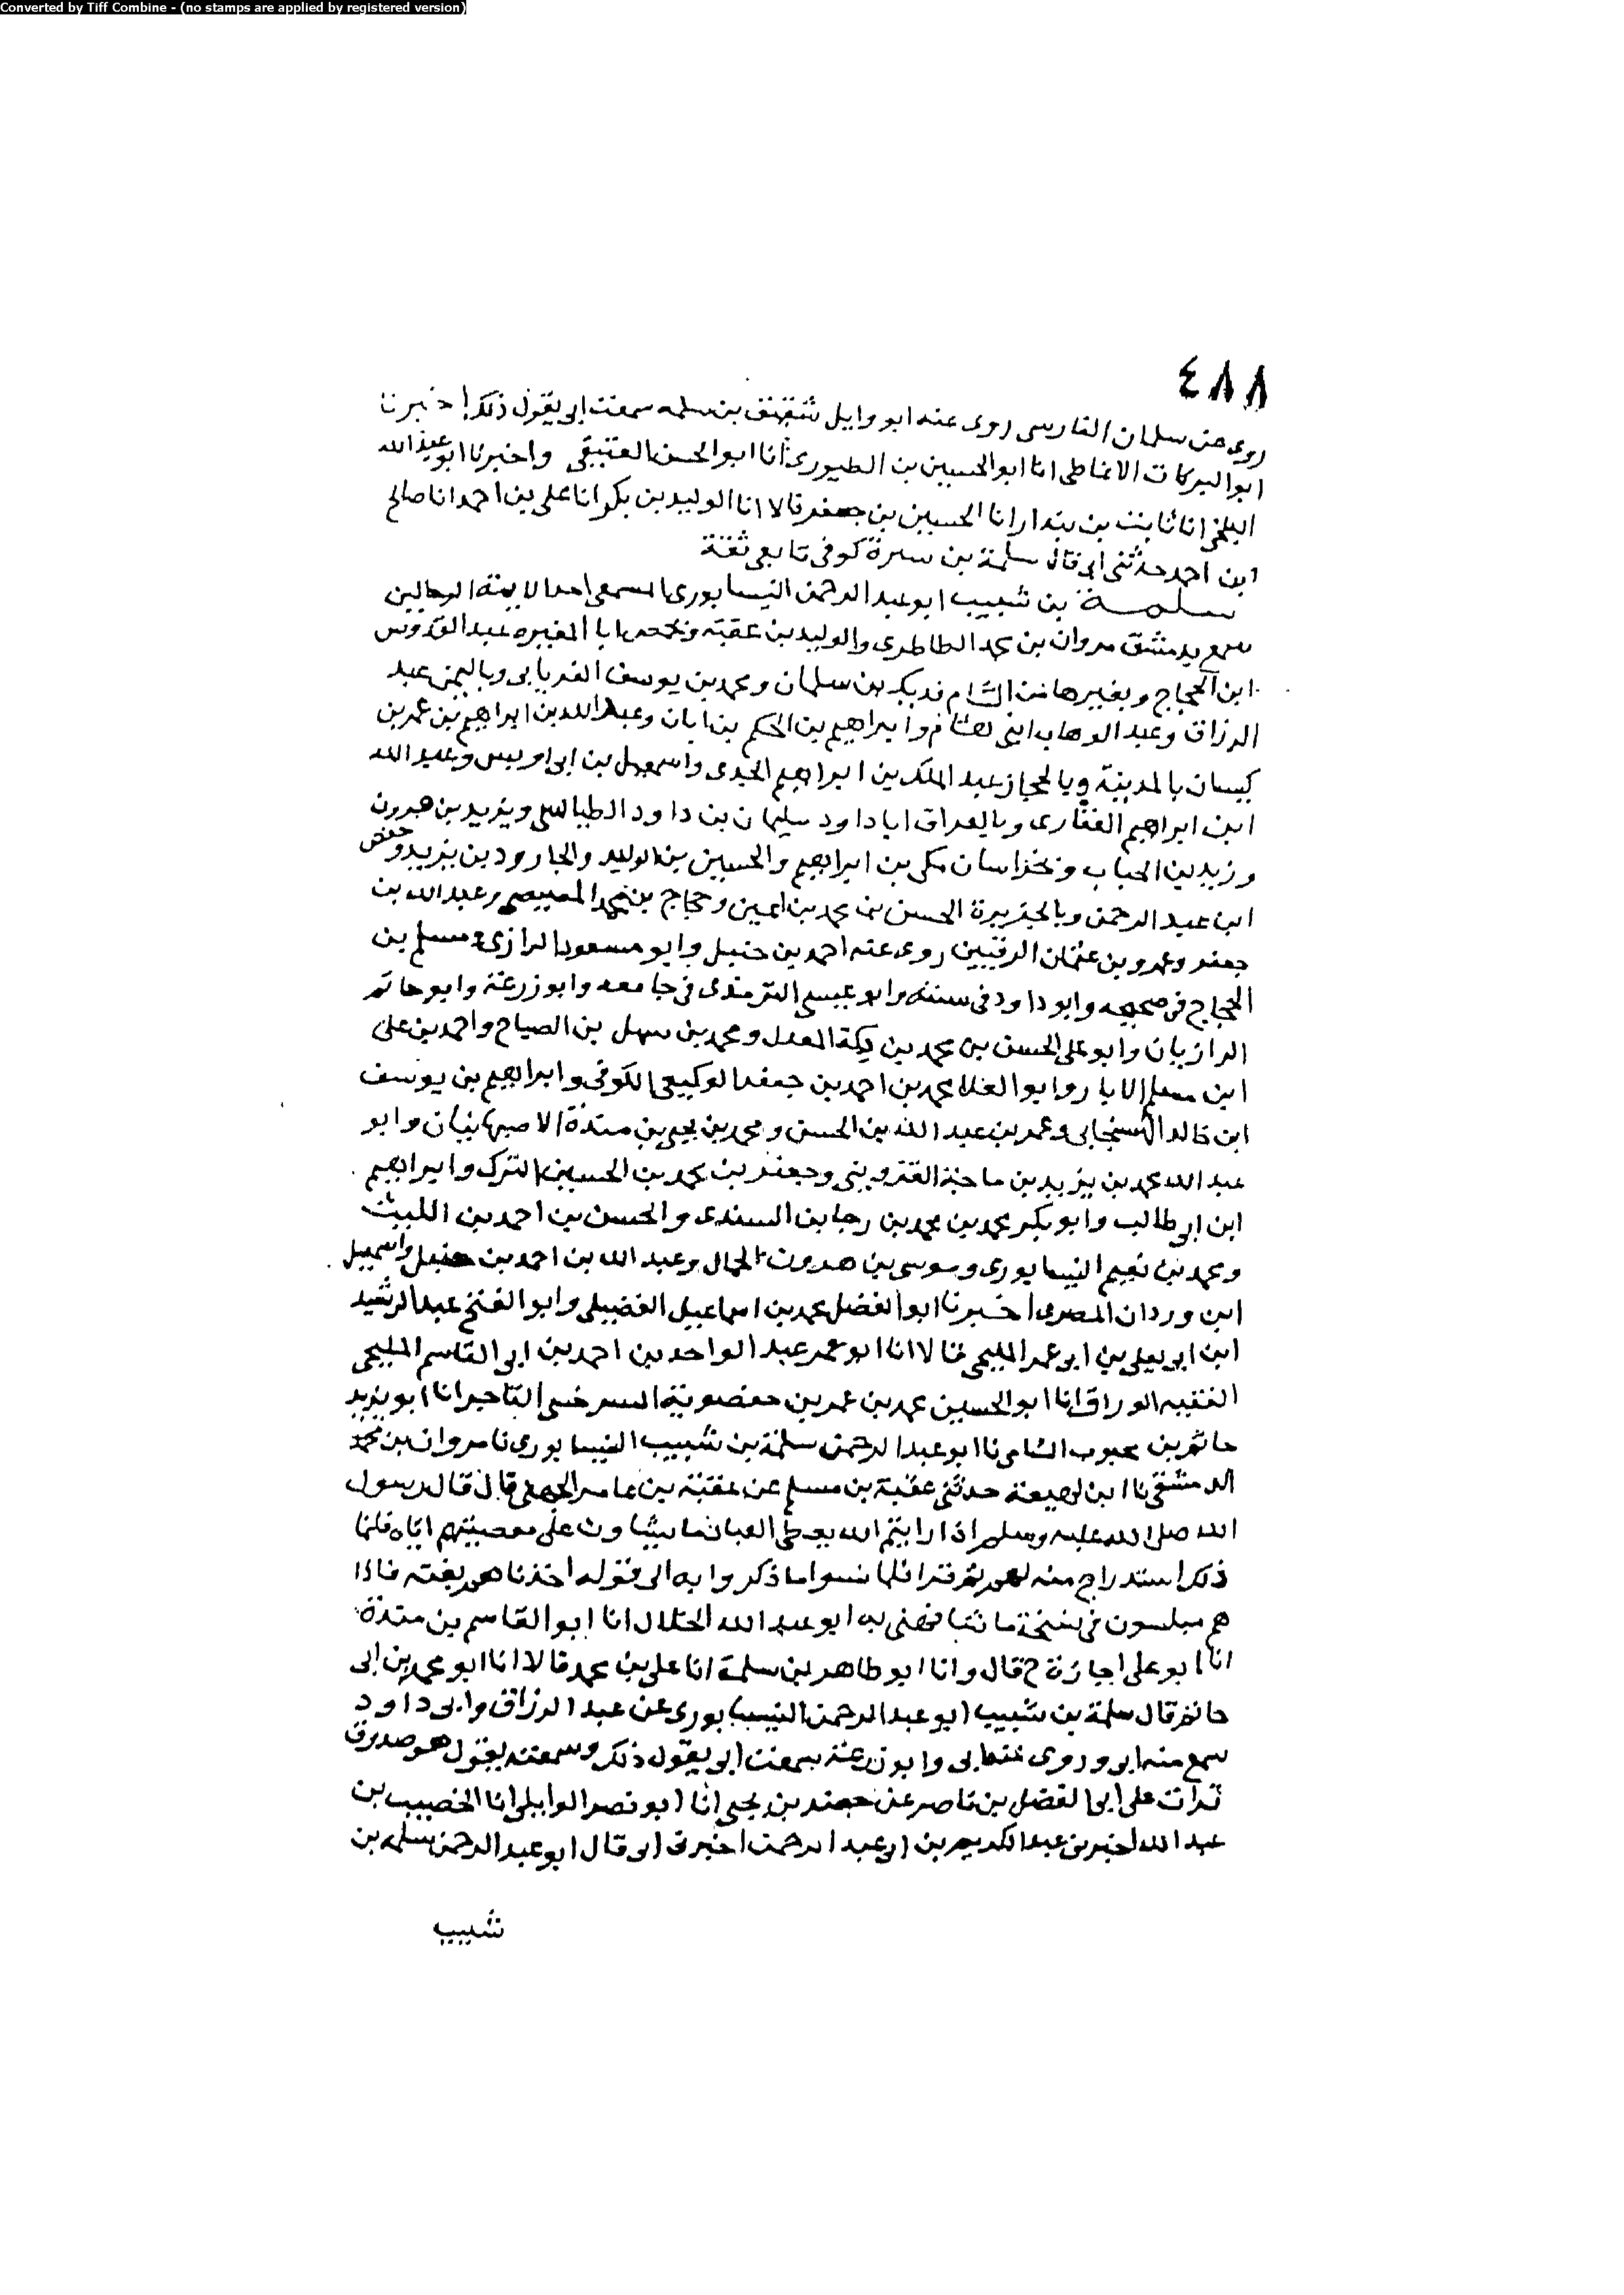 Converted by Tiff Combine - (no stamps are applied by registered version)
٤٨٨
روى عن سلمان الفارسى روى عنه ابو وايل شقيق بن سلمه سمعت ابى يقول ذلك اخبرنا
ابوالبركات الانماطى انا ابوالحسين بن الطيورى انا ابوالحسن العتيقى واخبرنا ابوعبدالله
البلخى انا ثابت بن بندار انا الحسين بن جعفر قالا انا الوليد بن بكر انا على بن احمد انا صالح
ابن احمد حدثنى ابى قال سلمة بن سبرة كوفى تابعى ثقة
سلمة بن شبيب ابو عبد الرحمن النيسابورى المسمعى احد الايمة الرحالين
سمع بدمشق مروان بن محمد الطاطرى والوليد بن عقبة وبحمص ابا المغيره عبد القدوس
ابن الحجاج وبغيرها من الشام فديك بن سلمان ومحمد بن يوسف الفريابى وباليمن عبد
الرزاق وعبد الوهاب ابنى همام وابراهيم بن الحكم بن ابان وعبد الله بن ابراهيم بن عمر بن
كيسان بالمدينة وبالحجاز عبد الملك بن ابراهيم الجدى واسمعيل بن ابى اويس وعبد الله
ابن ابراهيم الغفارى وبالعراق ابا داود سليمان بن داود الطيالسى ويزيد بن هرون
وزيد بن الحباب وبخراسان مكى بن ابراهيم والحسين بن الوليد والجارود بن يزيد وحفص
ابن عبد الرحمن وبالجزيرة الحسن بن محمد بن اعين وحجاج بن محمد المصيصى وعبد الله بن
جعفر وعمرو بن عثمان الرقيين روى عنه احمد بن حنبل وابو مسعود الرازى ومسلم بن
الحجاج فى صحيحه وابو داود فى سننه وابو عيسى الترمذى فى جامعه وابو زرعة وابو حاتم
الرازيان وابو على الحسن بن محمد بن دكة المعدل ومحمد بن سهل بن الصباح واحمد بن على
ابن مسلم الابار وابو العلا محمد بن احمد بن جعفر الوكيعى الكوفى وابراهيم بن يوسف
ابن خالد الهسنجانى وعمر بن عبد الله بن الحسن ومحمد بن يحيى بن مندة الاصبهانيان وابو
عبد الله محمد بن يزيد بن ماجة القزوينى وجعفر بن محمد بن الحسين الترك وابراهيم
ابن ابى طالب وابو بكر محمد بن محمد بن رجا بن السندى والحسن بن احمد بن الليث
ومحمد بن نعيم النيسابورى وموسى بن هرون الحمال وعبد الله بن احمد بن حنبل واسمعيل
ابن وردان المصرى اخبرنا ابو الفضل محمد بن اسماعيل الفضيلى وابو الفتح عبد الرشيد
ابن ابى يعلى بن ابو عمر المليحى قالا انا ابو عمر عبد الواحد بن احمد بن ابى القاسم المليحى
الفقيه الوراق انا ابو الحسين محمد بن عمر بن حفصوية السرخسى التاجر انا ابو يزيد
حاتم بن محبوب الشامى نا ابو عبد الرحمن سلمة بن شبيب النيسابورى نا مروان بن محمد
الدمشقى نا ابن لهيعة حدثنى عقبة بن مسلم عن عقبة بن عامر الجهنى قال قال رسول
الله صلى الله عليه وسلم اذا رايتم الله يعطى العباد ما يشاون على معصيتهم اياه فانما
ذلك استدراج منه لهم ثم قرا فلما نسوا ما ذكروا به الى قوله اخذناهم بغتة فاذا
هم مبلسون فى نسخة ما شافهنى به ابو عبد الله الخلال انا ابو القاسم بن مندة
انا ابو على اجازة ح قال وانا ابو طاهر بن سلمة انا على بن محمد قالا انا ابو محمد بن ابى
حاتم قال سلمة بن شبيب ابو عبد الرحمن النيسابورى عن عبد الرزاق وابى داود
سمع منه ابى وروى عنه ابى وابو زرعة سمعت ابى يقول ذلك وسمعته يقول هو صدوق
قرات على ابى الفضل بن ناصر عن جعفر بن يحيى انا ابو نصر الوايلى انا الخصيب بن
عبد الله اخبرنى عبد الكريم بن ابى عبد الرحمن اخبرنى ابى قال ابو عبد الرحمن سلمه بن
شبيب